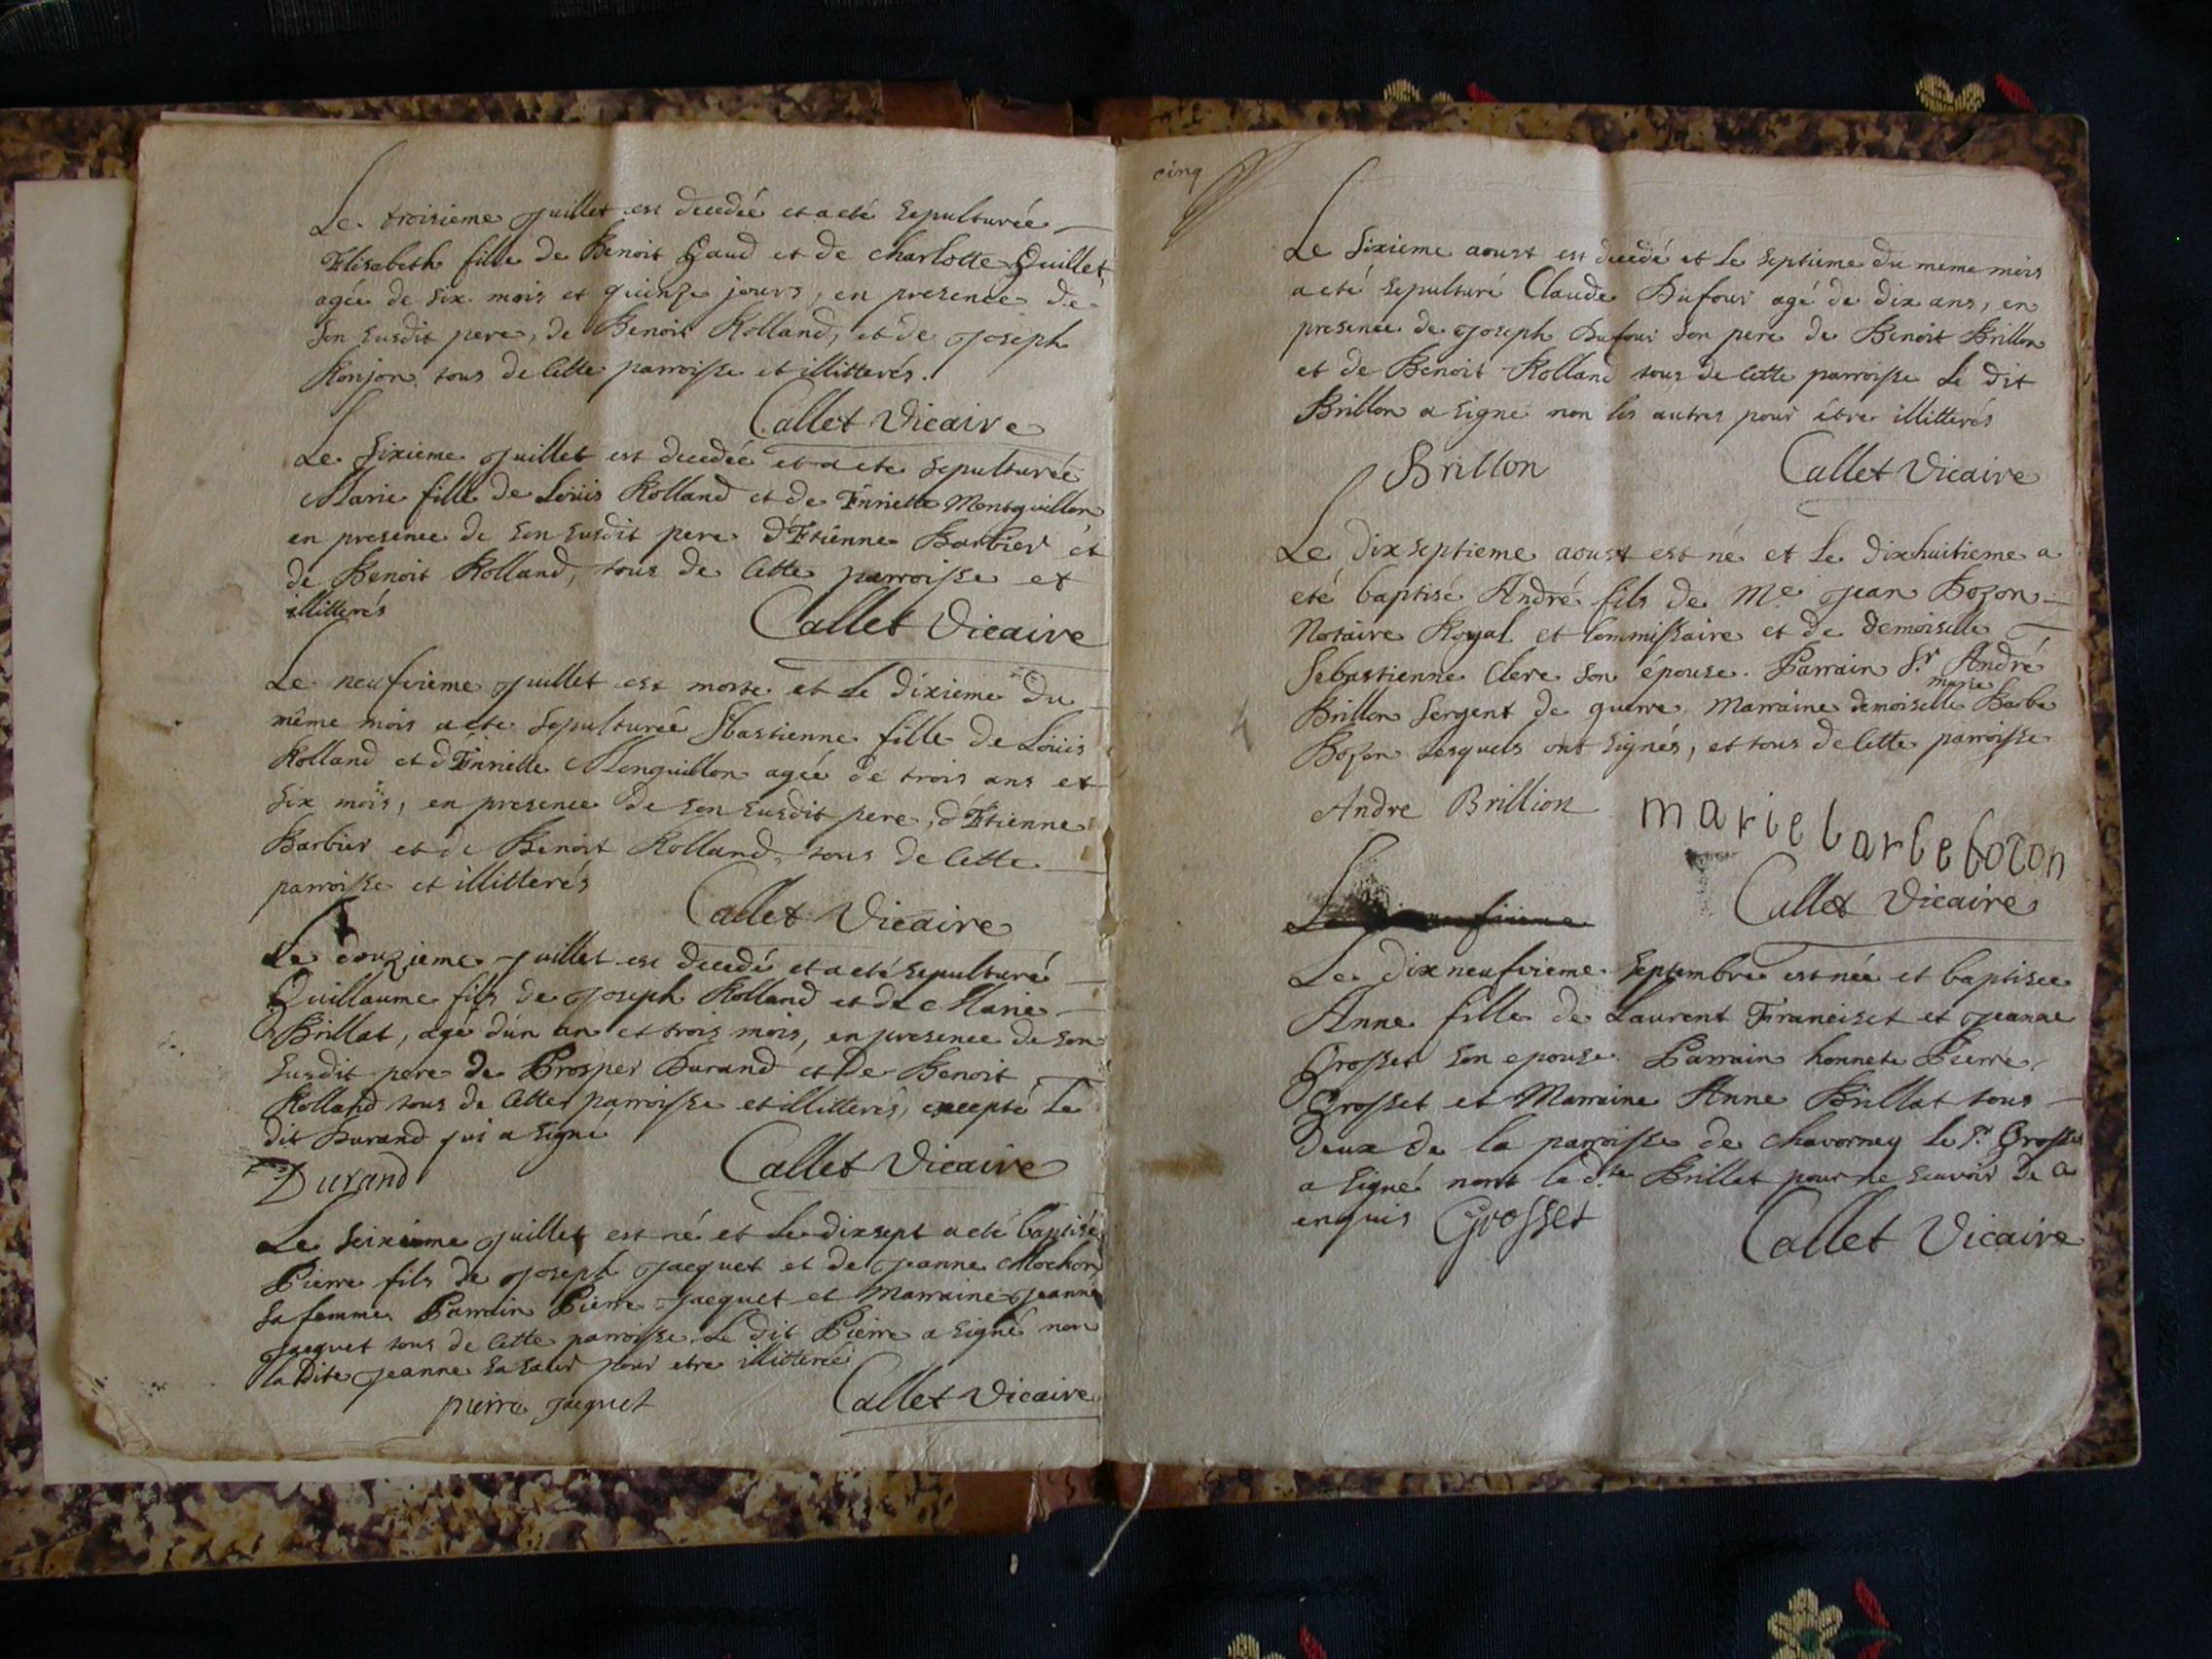 Le troisieme juillet est decedée et a eté sepulturée
Elisabeth fille de Benoit Gaud et de charlotte Guillet
agée de six mois et quinze jours, en presence de
son susdit pere, de Benoit Rolland, et de joseph
Ronjon tous de cette parroisse et illitterés.
Callet Vicaire
Le sixieme juillet est decedée et a ete sepulturée
Marie fille de Loüis Rolland et de Enriette Montquillon
en presence de son susdit pere d'Etienne Barbier et
de Benoit Rolland, tous de cette parroisse et
illitterés
Callet Vicaire
Le neufvieme juillet est morte et le dixieme du
même mois a ete sepulturée Sbastienne fille de Loüis
Rolland et d'Enriette Monguillon agée de trois ans et
six mois, en presence de son susdit pere, d'Etienne
Barbier et de Benoit Rolland, tous de cette
parroisse et illitterés
Callet Vicaire
Le douzieme juillet est decedé et a eté sepulturé
Guillaume fils de joseph Rolland et de Marie
Brillat, agé d'un an et trois mois, en presence de son
susdit pere de Prosper Durand et de Benoit
Rolland tous de cette parroisse et illitterés, excepté le
dit Durand qui a signé
Durand
Callet Vicaire
Le seixieme juillet est né et le dixsept a eté baptisé
Pierre fils de joseph jacquet et de jeanne Mochon
sa femme Parrain Pierre jacquet et Marraine jeanne
jacquet tous de cette parroisse le dit Pierre a signé non
la dite jeanne sa sœur pour etre illitterée
pierre jaquet
Callet Vicaire
cinq
Le sixieme aoust est decedé et le septieme du meme mois
a eté sepulturé Claude Dufour agé de dix ans, en
presence de joseph Dufour son pere de Benoit Brillon
et de Benoit Rolland tous de cette parroisse le dit
Brillon a signé non les autres pour étre illitterés
Brillon
Callet Vicaire
Le dixseptieme aoust est né et le dixhuitieme a
eté baptisé André fils de Me. jean Bozon
Notaire Royal et Commissaire et de demoiselle
Sebastienne Clerc son épouse. Parrain Sr. André
Brillon sergent de guerre, Marraine demoiselle marie Barbe
Bozon lesquels ont signés, et tous de cette parroisse
Andre Brillion
marie barbe bozon
Callet Vicaire
Le dixneufvieme septembre est née et baptisee
Anne fille de Laurent Franciset et jeanne
Grosset son epouse Parrain honnete Pierre
Grosset et Marraine Anne Brillat tous
deux de la parroisse de chavornay le Sr. Grosset
a signé non la dte. Brillat pour ne scavoir de ce
enquis
Grosset
Callet Vicaire